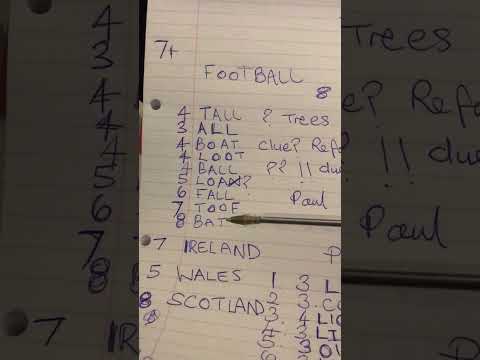 7+
FOOTBALL
8
4 TALL ? Trees
3 ALL
4 BOAT clue? Ref
4 LOOT
4 BALL ?? !!
5 LOAN?
6 FALL Paul
7 TOOF
8 BAT
7 IRELAND
5 WALES 1. 3 L
8 SCOTLAND 2. 3.
3. 4 LIO
4. 3 LI
5. 3 OU
6